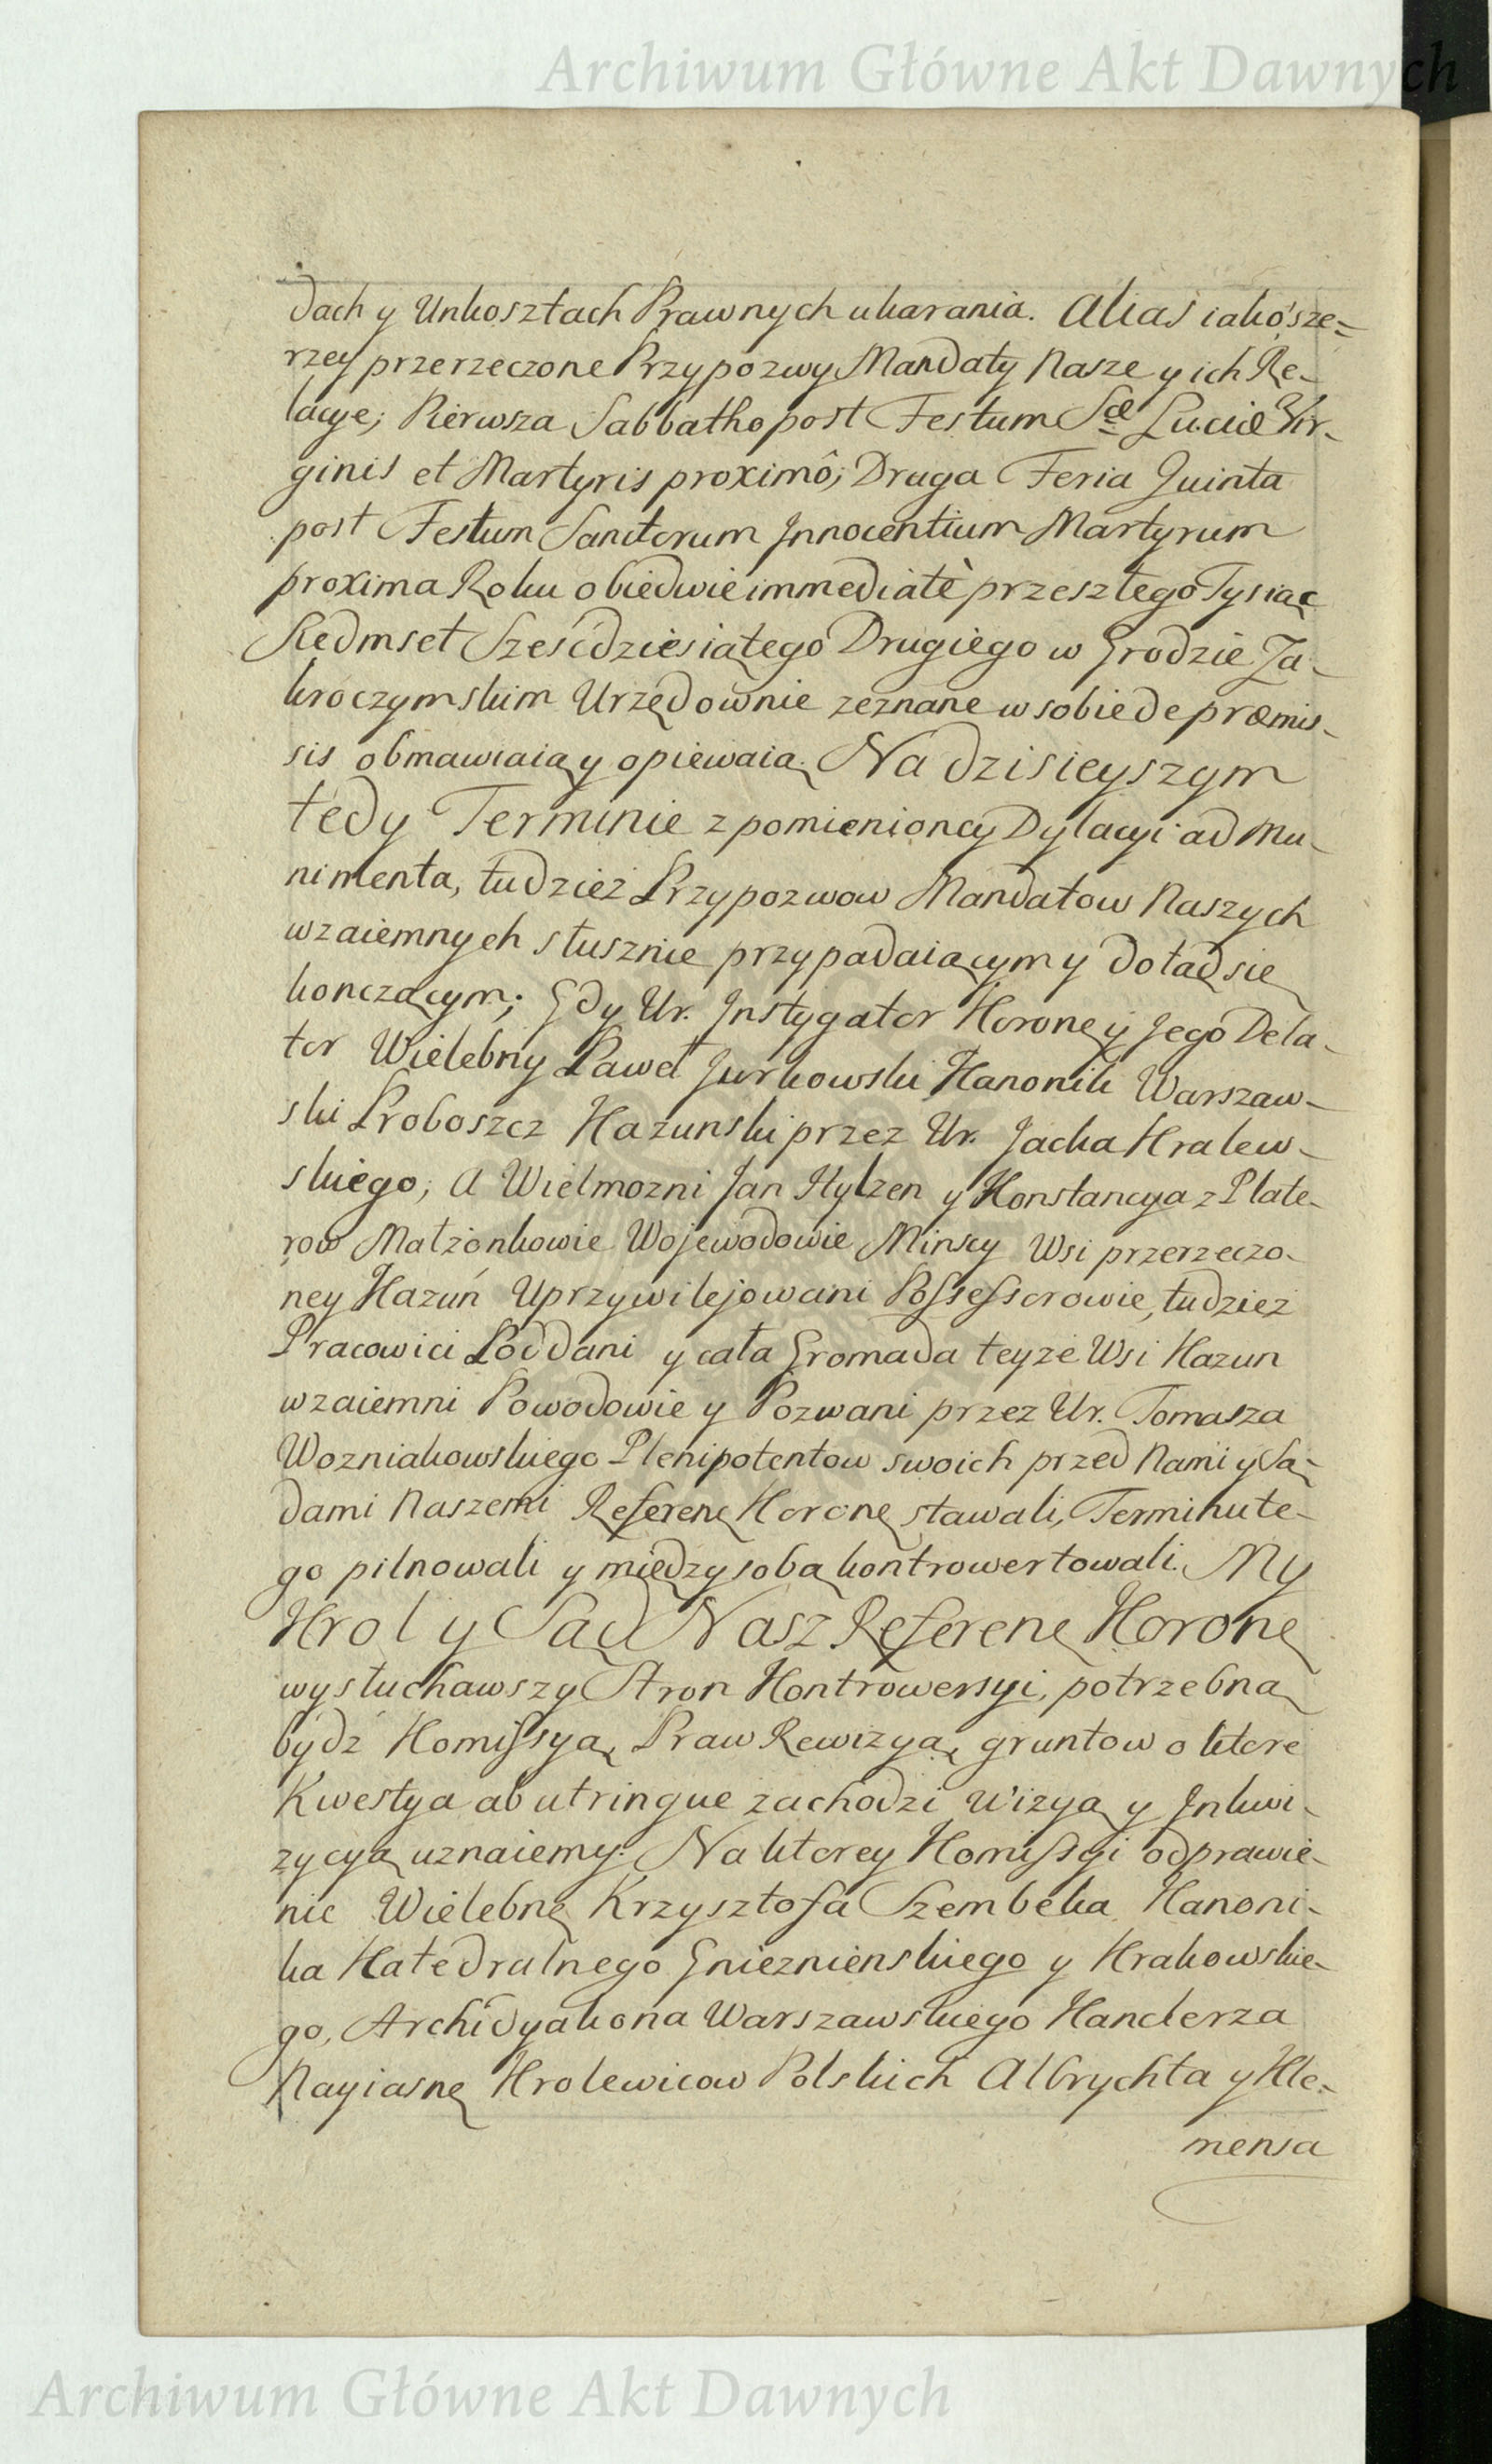 Archiwum Główne Akt Dawnych
dach y Unkosztach Prawnych ukarania. Alias iako sze=
rzey przerzeczone Przypozwy Mandaty Nasze y ich Re-
lacye; Pierwsza Sabbatho post Festum Scæ Luciæ Vir-
ginis et Martyris proximô; Druga Feria Quinta
post Festum Sanctorum Innocentium Martyrum
proxima Roku obiedwie immediatè przeszłego Tysiąc
Siedmset Sześćdziesiątego Drugiego w Grodzie Za-
kroczymskim Urzędownie zeznane w sobie de præmis-
sis obmawiaią y opiewaią. Na dzisieyszym
tedy Terminie z pomienioney Dylacyi ad Mu-
nimenta, tudzież Przypozwow Mandatow Naszych
wzaiemnych słusznie przypadaiącym y dotąd się
konczącym; Gdy Ur. Instygator Koronny Jego Dela-
tor Wielebny Paweł Jurkowski Kanonik Warszaw-
ski Proboszcz Kazunski przez Ur. Jacka Kralew-
skiego; A Wielmozni Jan Hylzen y Konstancya z Plate-
row Małżonkowie Wojewodowie Minscy Wsi przerzeczo-
ney Kazuń Uprzywilejowani Possessorowie, tudzież
Pracowici Poddani y cała Gromada teyże Wsi Kazun
wzaiemni Powodowie y Pozwani przez Ur. Tomasza
Wozniakowskiego Plenipotentow swoich przed Nami y Są-
dami Naszemi Referen Koron stawali, Terminu te-
go pilnowali y między sobą kontrowertowali. My
Krol y Sąd Nasz Referen Koron
wysłuchawszy Stron Kontrowersyi, potrzebną
bydź Komissyą, Praw Rewizyą, gruntow o ktore
Kwestya ab utrinque zachodzi Wizyą y Inkwi-
zycyą uznaiemy. Na ktorey Komissyi odprawie-
nie Wielebne Krzysztofa Szembeka Kanoni-
ka Katedralnego Gnieznienskiego y Krakowskie-
go, Archidyakona Warszawskiego Kanclerza
Nayiasne Krolewicow Polskich Albrychta y Kle-
mensa
Archiwum Główne Akt Dawnych